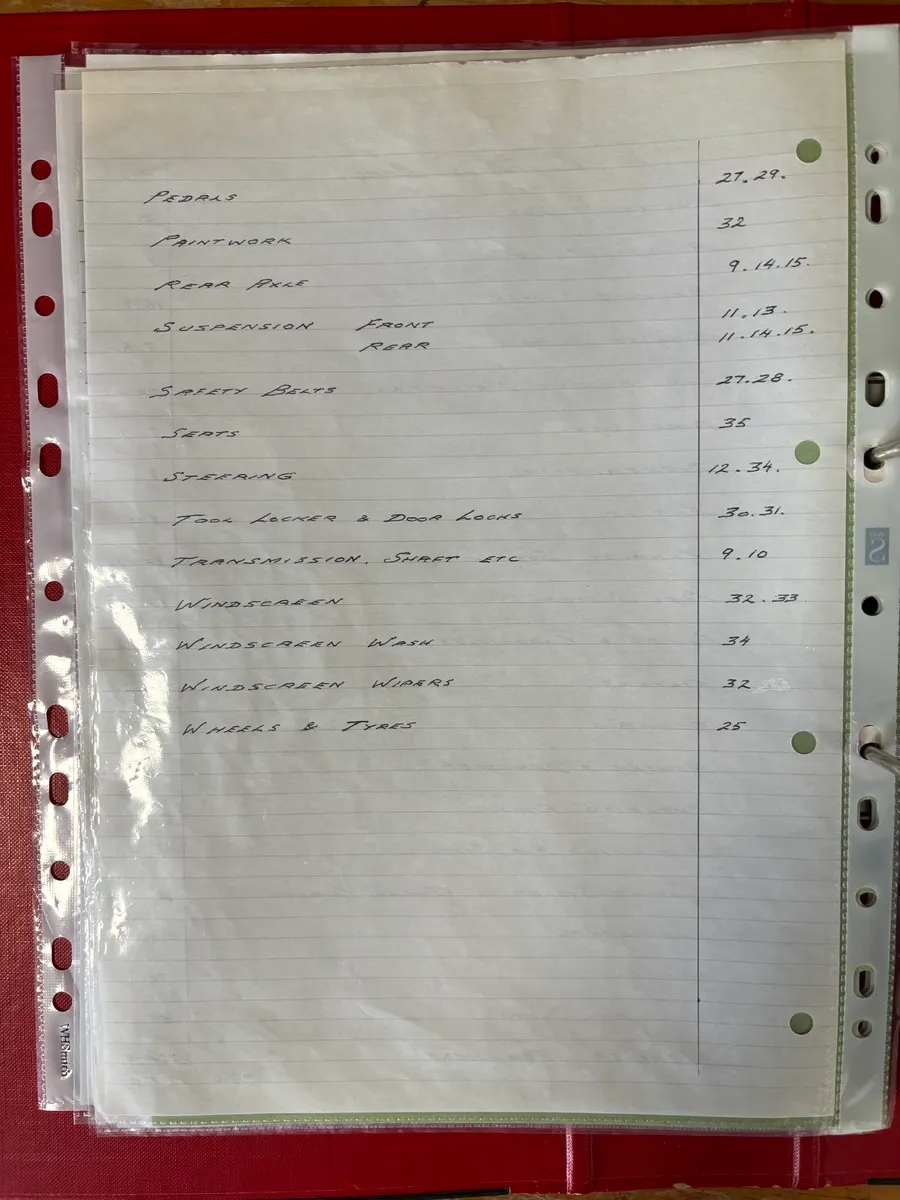 PEDALS 27.29.
PAINTWORK 32
REAR AXLE 9.14.15.
SUSPENSION FRONT 11.13.
REAR 11.14.15.
SAFETY BELTS 27.28.
SEATS 35
STEERING 12.34.
TOOL LOCKER & DOOR LOCKS 30.31.
TRANSMISSION. SHAFT ETC 9.10
WINDSCREEN 32.33
WINDSCREEN WASH 34
WINDSCREEN WIPERS 32
WHEELS & TYRES 25
WHSmith